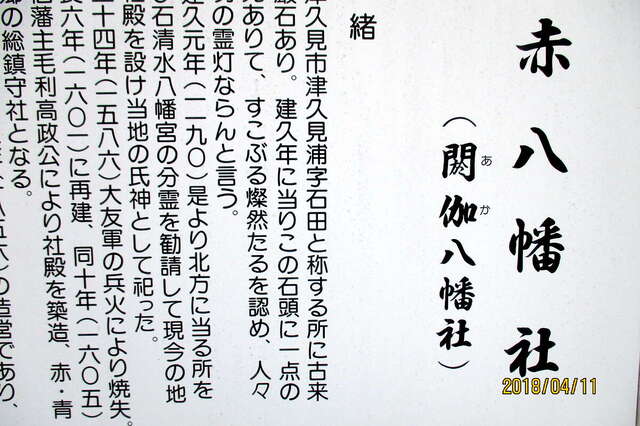 赤八幡社
(閼伽八幡社)
あか
緒
津久見市津久見浦字石田と称する所に古来
巌石あり。建久年に当りこの石頭に一点の
ありて、すこぶる燦然たるを認め、人々
の霊灯ならんと言う。
建久元年(一一九〇)是より北方に当る所を
石清水八幡宮の分霊を勧請して現今の地
社殿を設け当地の氏神として祀った。
十四年(一五八六)大友軍の兵火により焼失。
六年(一六〇一)に再建、同十年(一六〇五)
藩主毛利高政公により社殿を築造、赤・青
郷の総鎮守社となる。
八五六)の造営であり、
2018/04/11